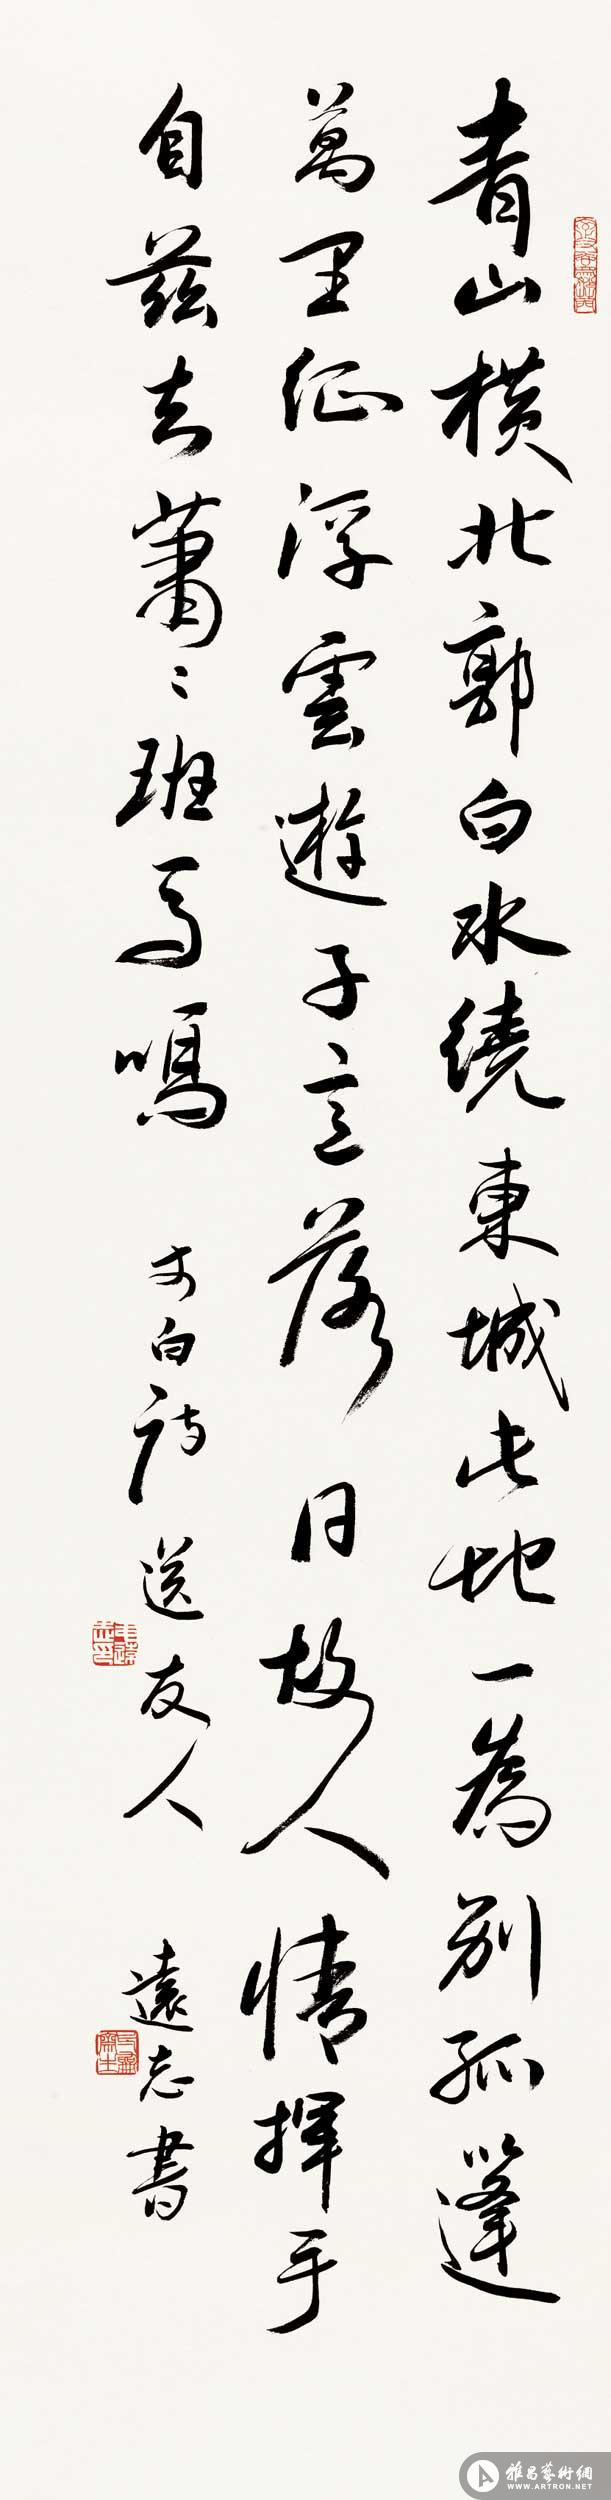 青山橫北郭白水繞東城此地一為別孤蓬
萬里征浮雲遊子意落日故人情揮手
自茲去蕭〻班馬鳴 李白詩送友人 遠書
雅昌藝術網
WWW.ARTRON.NET